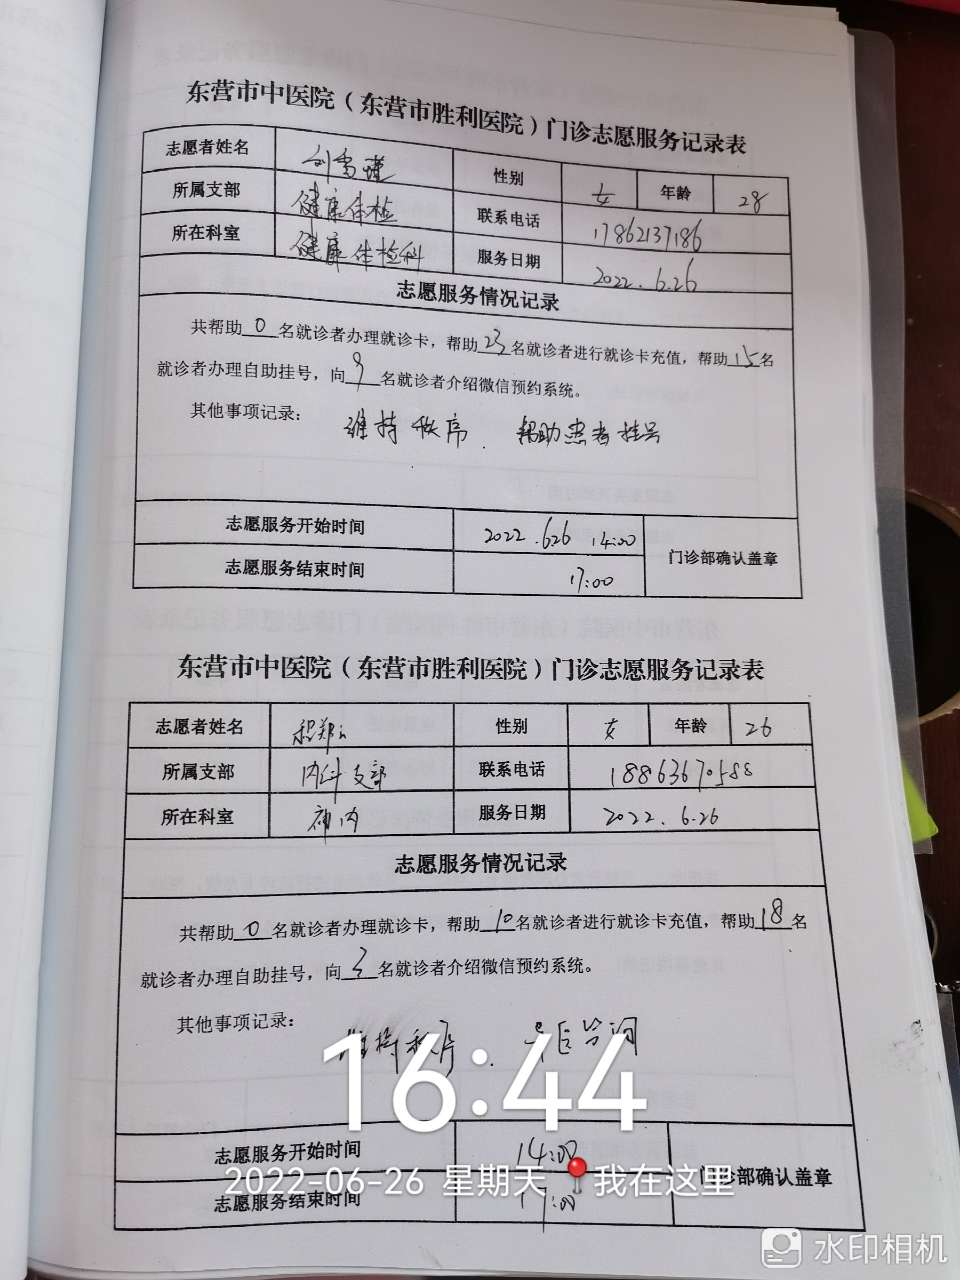 东营市中医院（东营市胜利医院）门诊志愿服务记录表
志愿者姓名 性别 女 年龄 28
所属支部 健康体检 联系电话 17862137186
所在科室 健康体检科 服务日期 2022.6.26
志愿服务情况记录
共帮助0名就诊者办理就诊卡，帮助23名就诊者进行就诊卡充值，帮助15名
就诊者办理自助挂号，向9名就诊者介绍微信预约系统。
其他事项记录：维持秩序. 帮助患者挂号
志愿服务开始时间 2022.626 14:00
门诊部确认盖章
志愿服务结束时间 17:00
东营市中医院（东营市胜利医院）门诊志愿服务记录表
志愿者姓名 性别 女 年龄 26
所属支部 内科支部 联系电话 18863670588
所在科室 神内 服务日期 2022.6.26
志愿服务情况记录
共帮助0名就诊者办理就诊卡，帮助10名就诊者进行就诊卡充值，帮助18名
就诊者办理自助挂号，向3名就诊者介绍微信预约系统。
其他事项记录：维持秩序.
16:44
志愿服务开始时间 14:00
2022-06-26 星期天 我在这里
门诊部确认盖章
志愿服务结束时间 17:00
水印相机